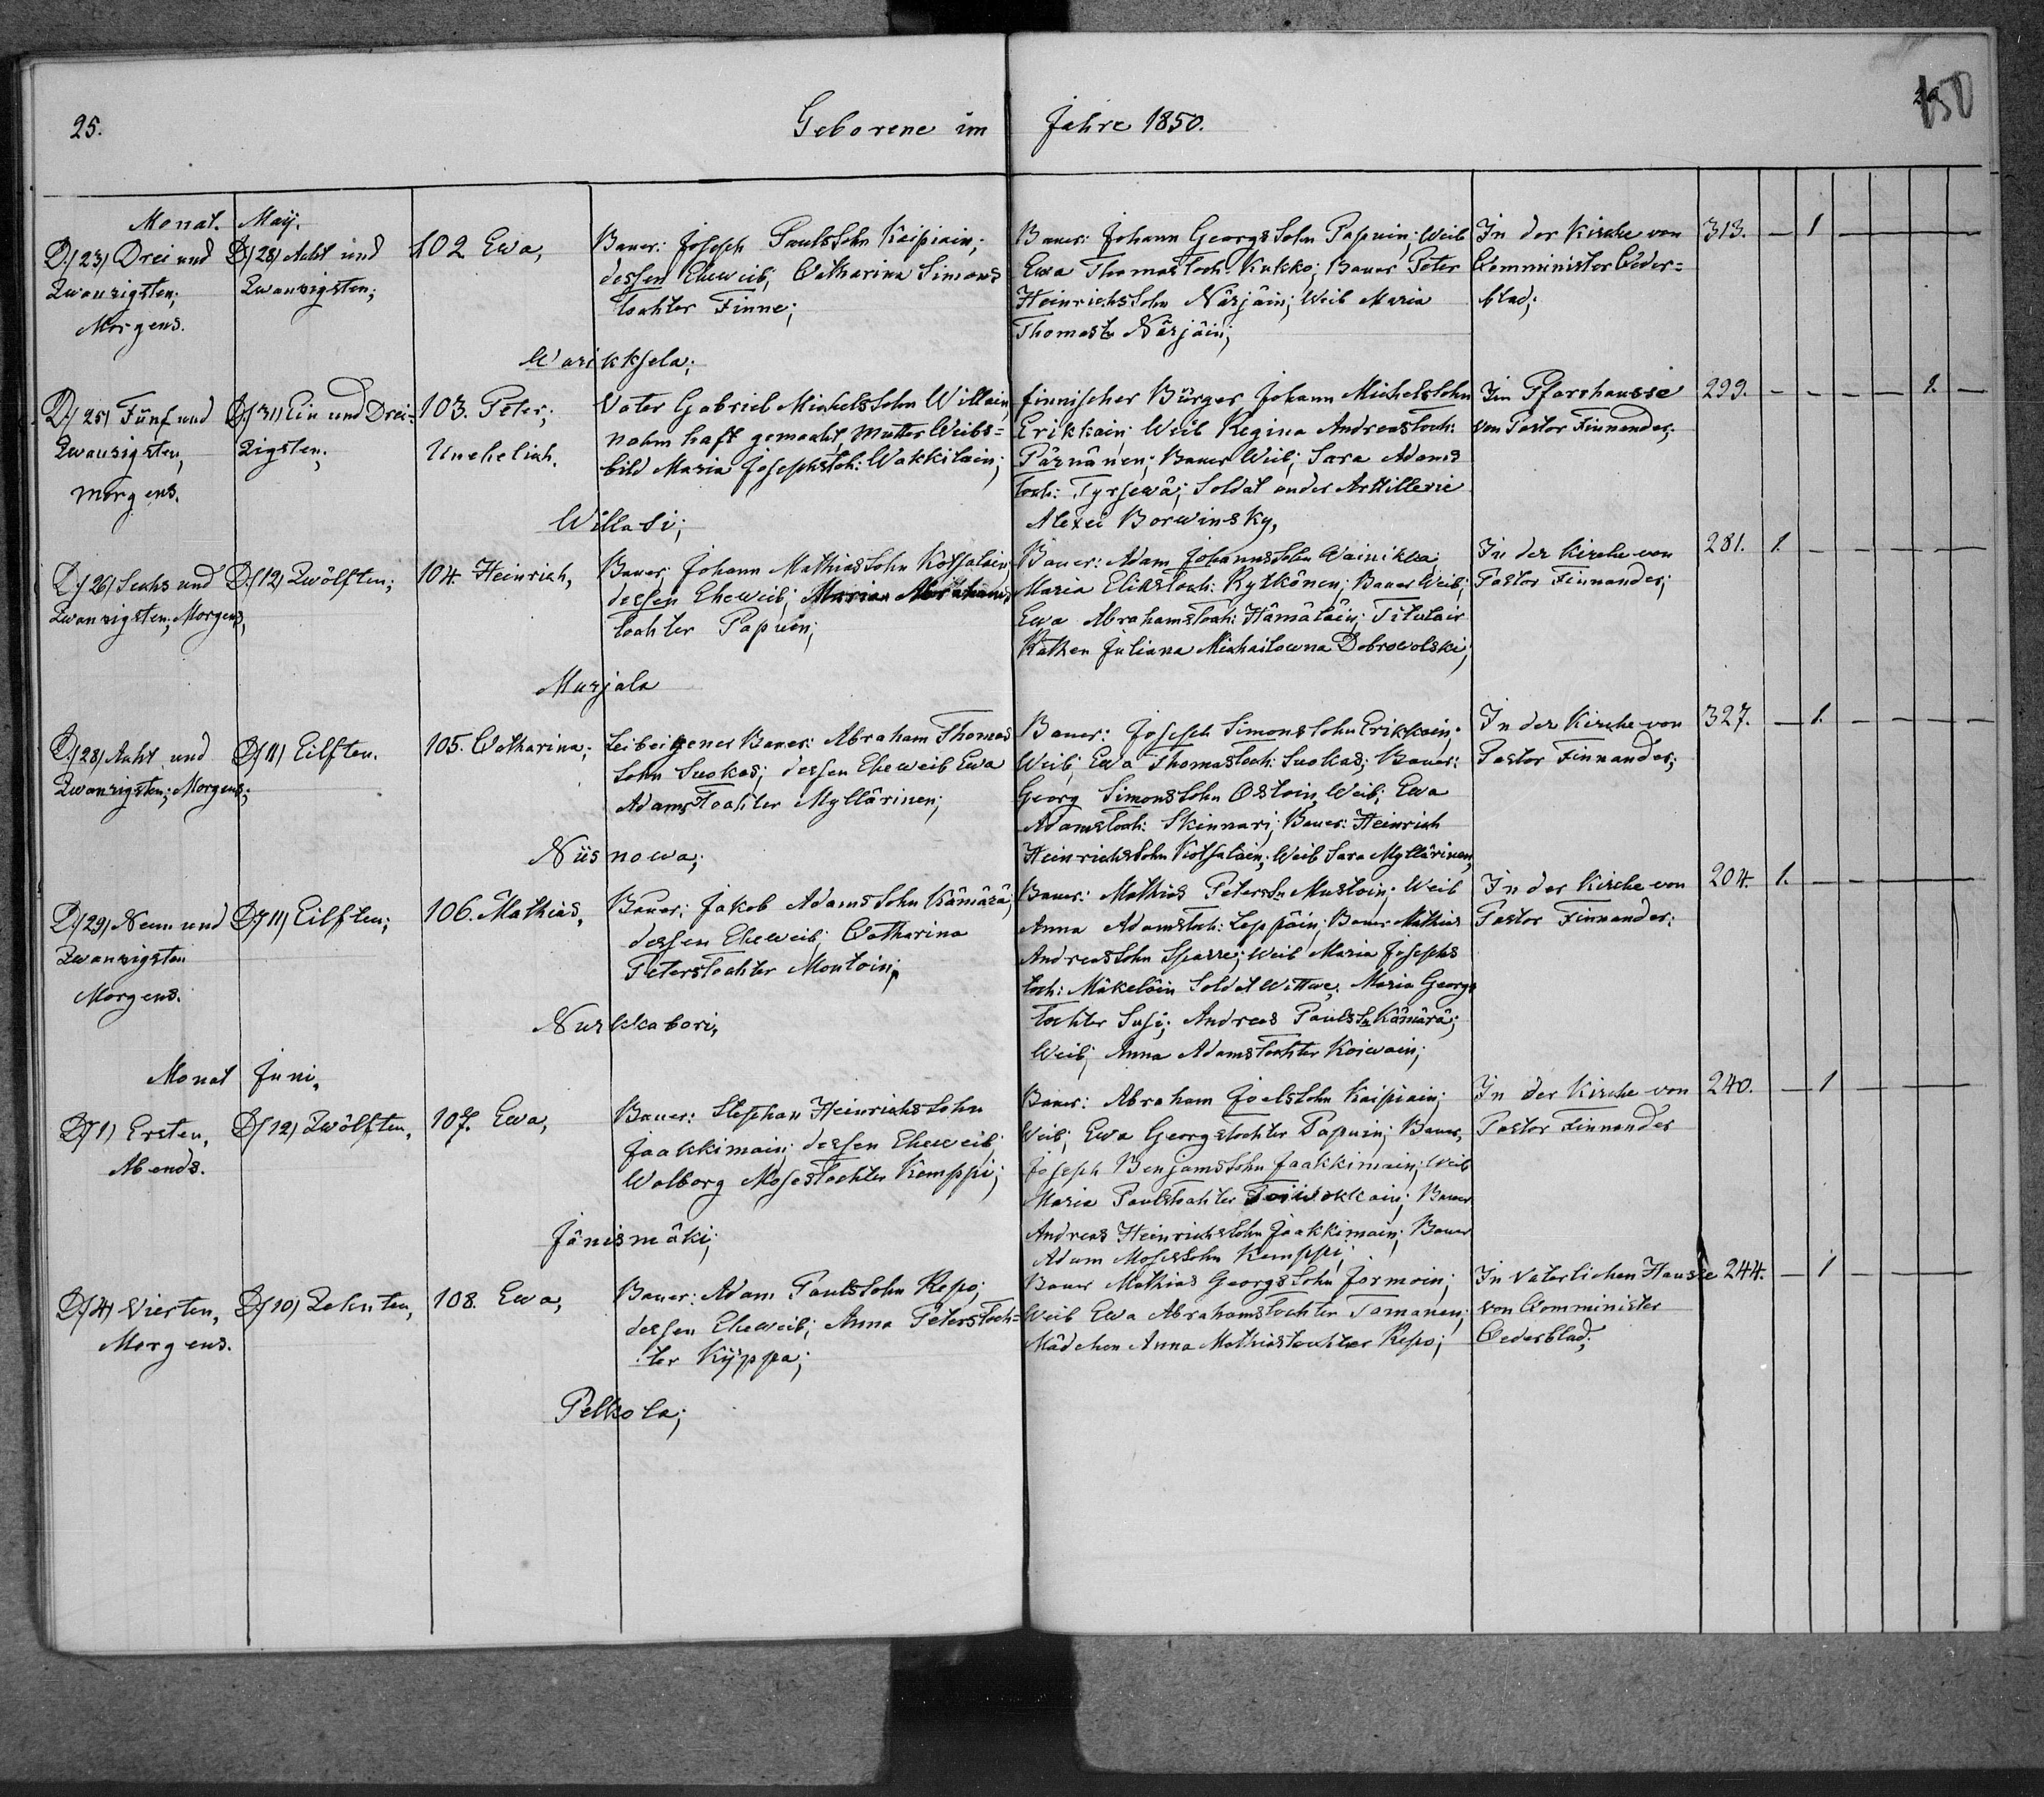 25.
Geborene im Jahre 1850.
150
Monat. Maij.
D./23) Drei und
Zwanzigsten;
Morgens.
D/28) Acht und
Zwanzigsten;
102 Ewa,
Bauer: Joseph Paulssohn Kaipiain;
dessen Eheweib, Catharina Simons
tochter Finne;
Warikksela;
Bauer: Johann Georgssohn Papuin; Weib
Ewa Thomastoch: Kukko; Bauer Peter
Heinrichssohn Närjäin; Weib Maria
Thomastr Närjäin;
In der Kirche von
Comminister Ceder=
blad;
313. — 1 — — — —
D./25) Fünf und
Zwanzigsten,
morgens.
D/31) Ein und Drei=
zigsten;
103. Peter;
Unehelich.
Vater Gabriel Michelssohn Willain
nahmhaft gemacht, Mutter Weibs=
bild Maria Josephstoh: Wakkilain;
Willasi;
finnischer Bürger Johann Michelssohn
Erikkain; Weib Regina Andreastoch:
Pärnänen; Bauer Weib; Sara Adams
toch: Tyrsewä; Soldat on der Arttillerie
Alexei Borwinsky,
Im Pfarrhausse
von Pastor Finnander;
299. — — — — 1. —
D./26) Sechs und
Zwanzigsten; Morgens,
D./12) Zwölften;
104 Heinrich,
Bauer; Johann Mathiassohn Kotsalain
dessen Eheweib; Maria Abrahams
tochter Papuin;
Murjala
Bauer: Adam Johannssohn Wainikka;
Maria Eliastoch: Rytkönen; Bauer Weib;
Ewa Abrahamstoch: Hämäläin; Titulair
Rathen Juliana Michailowna Dobrowolski;
In der Kirche von
Pastor Finnander;
281. 1. — — — — —
D./28) Acht und
Zwanzigsten; Morgens;
D/11) Eilften.
105. Catharina;
Leibeigener Bauer: Abraham Thomas
sohn Suokas; dessen Eheweib Ewa
Adamstochter Myllärinen;
Niisnowa;
Bauer: Joseph Simonssohn Erikkain;
Weib; Ewa Thomastoch: Suokas; Bauer:
Georg Simonssohn Ostoin, Weib; Ewa
Adamstoch: Skinnari; Bauer: Heinrich
Heinrichssohn Kotsalain; Weib Sara Myllärinen,
In der Kirche von
Pastor Finnander;
327. — 1. — — — —
D./29) Neun und
Zwanzigsten
Morgens.
D/11) Eilften;
106. Mathias,
Bauer; Jakob Adamssohn Kämärä;
dessen Eheweib; Catharina
Peterstochter Montoin;
Nurkkabori,
Bauer: Mathias Peterssn Mustoin; Weib
Anna Adamstoch: Leppäin; Bauer Mathias
Andreassohn Sparre; Weib Maria Josephs
toch: Mäkeläin Soldat Wittwe; Maria Georgs
tochter Susi; Andreas Paulssn Kämärä;
Weib; Anna Adamstochter Koiwain;
In der Kirche von
Pastor Finnander:
204. 1. — — — — —
Monat Juni,
D/1) Ersten,
Abends.
D/12) Zwölften,
107. Ewa,
Bauer: Stephan Heinrichssohn
Jaakkimain; dessen Eheweib;
Walborg Mosestochter Kemppi;
Jänismäki;
Bauer: Abraham Joelssohn Kaipiain;
Weib; Ewa Georgstochter Papuin; Bauer,
Joseph Benjamssohn Jaakkimain; Weib
Maria Paulstochter Toiwokkain; Bauer
Andreas Heinrichssohn Jaakkimain; Bauer
Adam Mosessohn Kemppi;
In der Kirche von
Pastor Finnander
240. — 1 — — — —
D/4) Vierten,
Morgens.
D/10) Zehnten,
108. Ewa,
Bauer: Adam Paulssohn Repo;
dessen Eheweib; Anna Peterstoch=
ter Kyppa;
Pelkola;
Bauer Mathias Georgssohn Jormoin;
Weib Ewa Abrahamstochter Tamanen;
Mädchen Anna Mathiastochter Repo;
In Vaterlichen Hausse
von Comminister
Cederblad;
244. — 1 — — — —